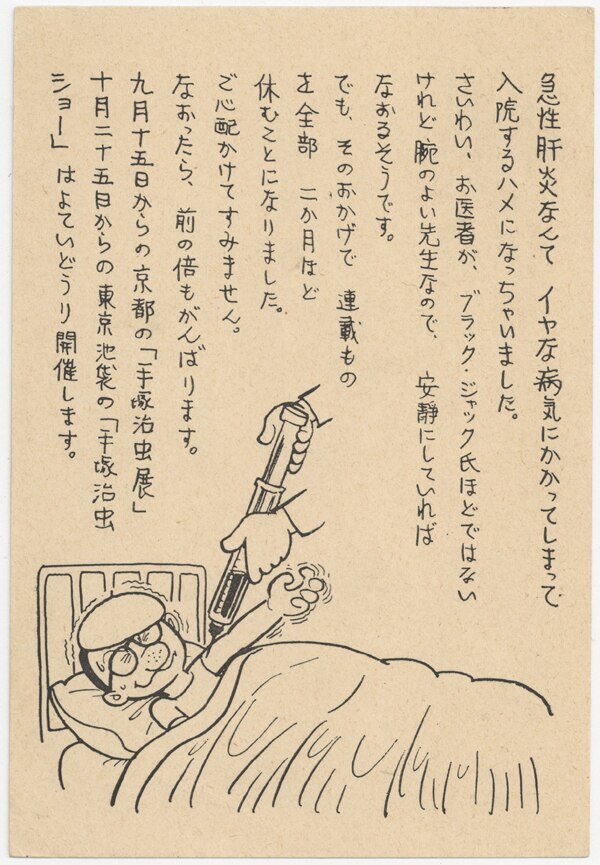 急性肝炎なんて　イヤな病気にかかってしまって
入院するハメになっちゃいました。
さいわい、お医者が、ブラック・ジャック氏ほどではない
けれど腕のよい先生なので、　安静にしていれば
なおるそうです。
でも、そのおかげで　連載もの
を全部　二か月ほど
休むことになりました。
ご心配かけてすみません。
なおったら、前の倍もがんばります。
九月十五日からの京都の「手塚治虫展」
十月二十五日からの東京池袋の「手塚治虫
ショー」はよていどうり開催します。